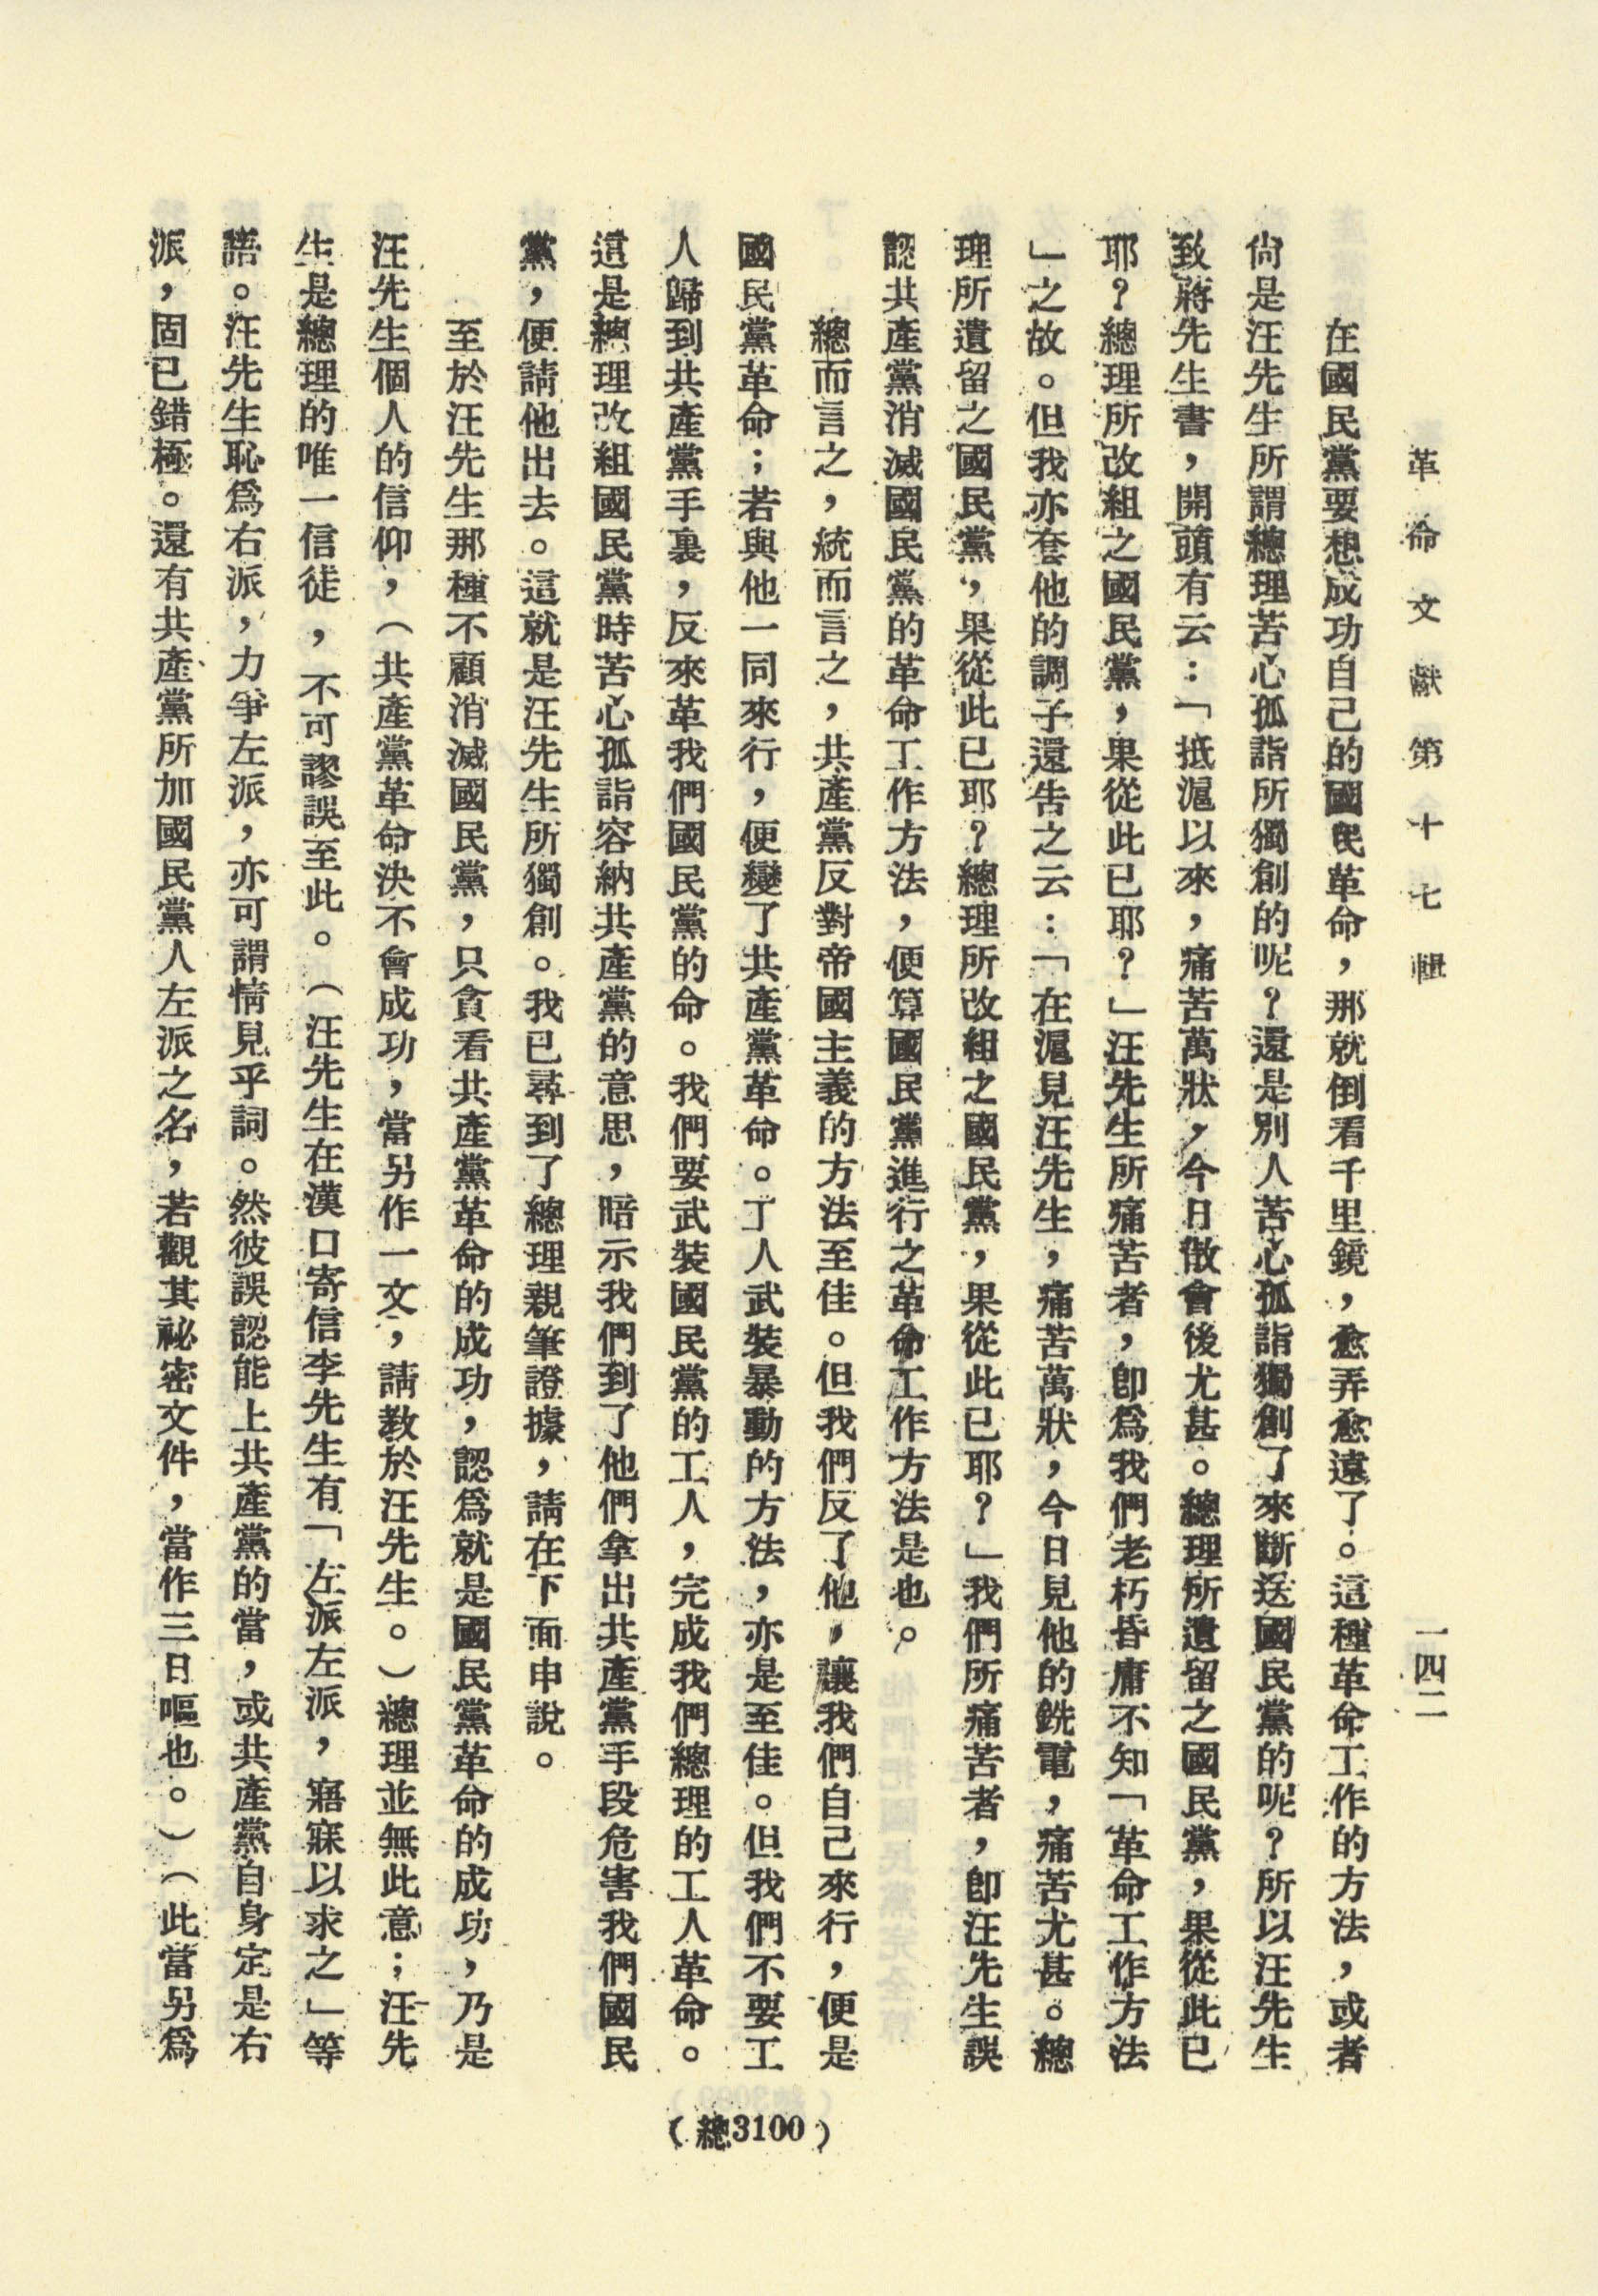 革命文獻第十七輯
一四二
在國民黨要想成功自己的國民革命，那就倒看千里鏡，愈弄愈遠了。這種革命工作的方法，或者
尙是汪先生所謂總理苦心孤詣所獨創的呢？還是別人苦心孤詣獨創了來斷送國民黨的呢？所以汪先生
致蔣先生書，開頭有云：「抵滬以來，痛苦萬狀，今日散會後尤甚。總理所遺留之國民黨，果從此已
耶？總理所改組之國民黨，果從此已耶？」汪先生所痛苦者，卽爲我們老朽昏庸不知「革命工作方法
」之故。但我亦套他的調子還告之云：「在滬見汪先生，痛苦萬狀，今日見他的銑電，痛苦尤甚。總
理所遺留之國民黨，果從此已耶？總理所改組之國民黨，果從此已耶？」我們所痛苦者，卽汪先生誤
認共產黨消滅國民黨的革命工作方法，便算國民黨進行之革命工作方法是也。
總而言之，統而言之，共產黨反對帝國主義的方法至佳。但我們反了他，讓我們自己來行，便是
國民黨革命；若與他一同來行，便變了共產黨革命。工人武裝暴動的方法，亦是至佳。但我們不要工
人歸到共產黨手裏，反來革我們國民黨的命。我們要武裝國民黨的工人，完成我們總理的工人革命。
這是總理改組國民黨時苦心孤詣容納共產黨的意思，暗示我們到了他們拿出共產黨手段危害我們國民
黨，便請他出去。這就是汪先生所獨創。我已尋到了總理親筆證據，請在下面申說。
至於汪先生那種不顧消滅國民黨，只貪看共產黨革命的成功，認爲就是國民黨革命的成功，乃是
汪先生個人的信仰，（共產黨革命決不會成功，當另作一文，請敎於汪先生。）總理並無此意；汪先
生是總理的唯一信徒，不可謬誤至此。（汪先生在漢口寄信李先生有「左派左派，寤寐以求之」等
語。汪先生恥爲右派，力爭左派，亦可謂情見乎詞。然彼誤認能上共產黨的當，或共產黨自身定是右
派，固已錯極。還有共產黨所加國民黨人左派之名，若觀其祕密文件，當作三日嘔也。）（此當另爲
（總3100）